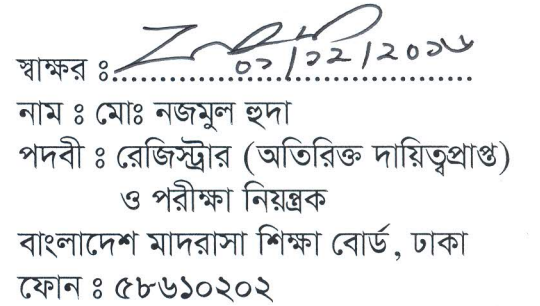 স্বাক্ষর ঃ
০১/১২/২০১৬
নাম ঃ মোঃ নজমুল হুদা
পদবী ঃ রেজিস্ট্রার (অতিরিক্ত দায়িত্বপ্রাপ্ত)
ও পরীক্ষা নিয়ন্ত্রক
বাংলাদেশ মাদরাসা শিক্ষা বোর্ড, ঢাকা
ফোন ঃ ৫৮৬১০২০২